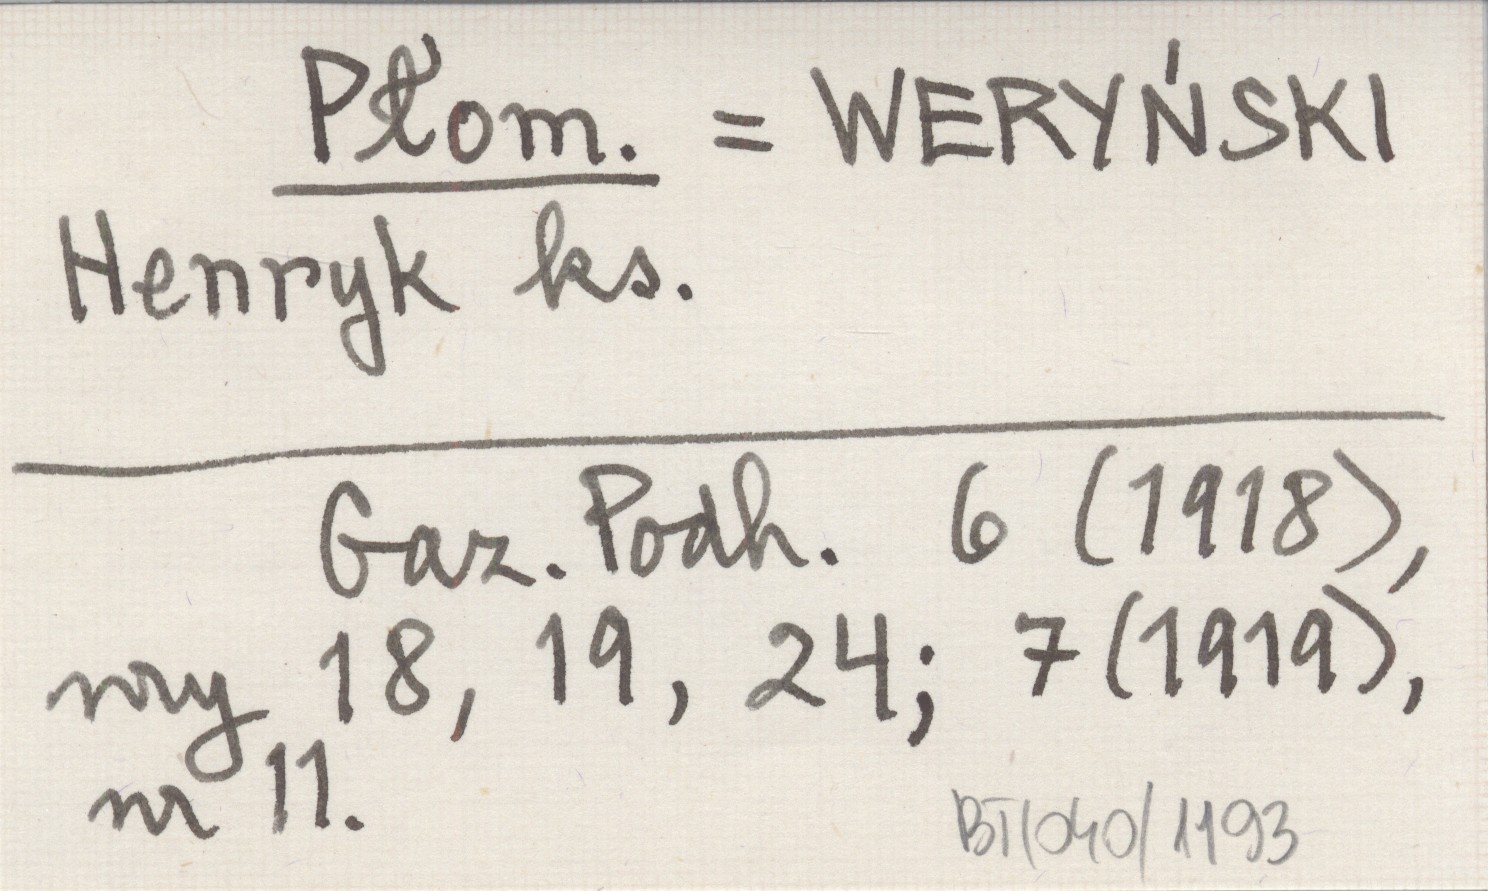 Płom. = WERYŃSKI
Henryk ks.
Gaz. Podh. 6 (1918),
nry 18, 19, 24; 7 (1919),
nr 11.
BT/040/1193